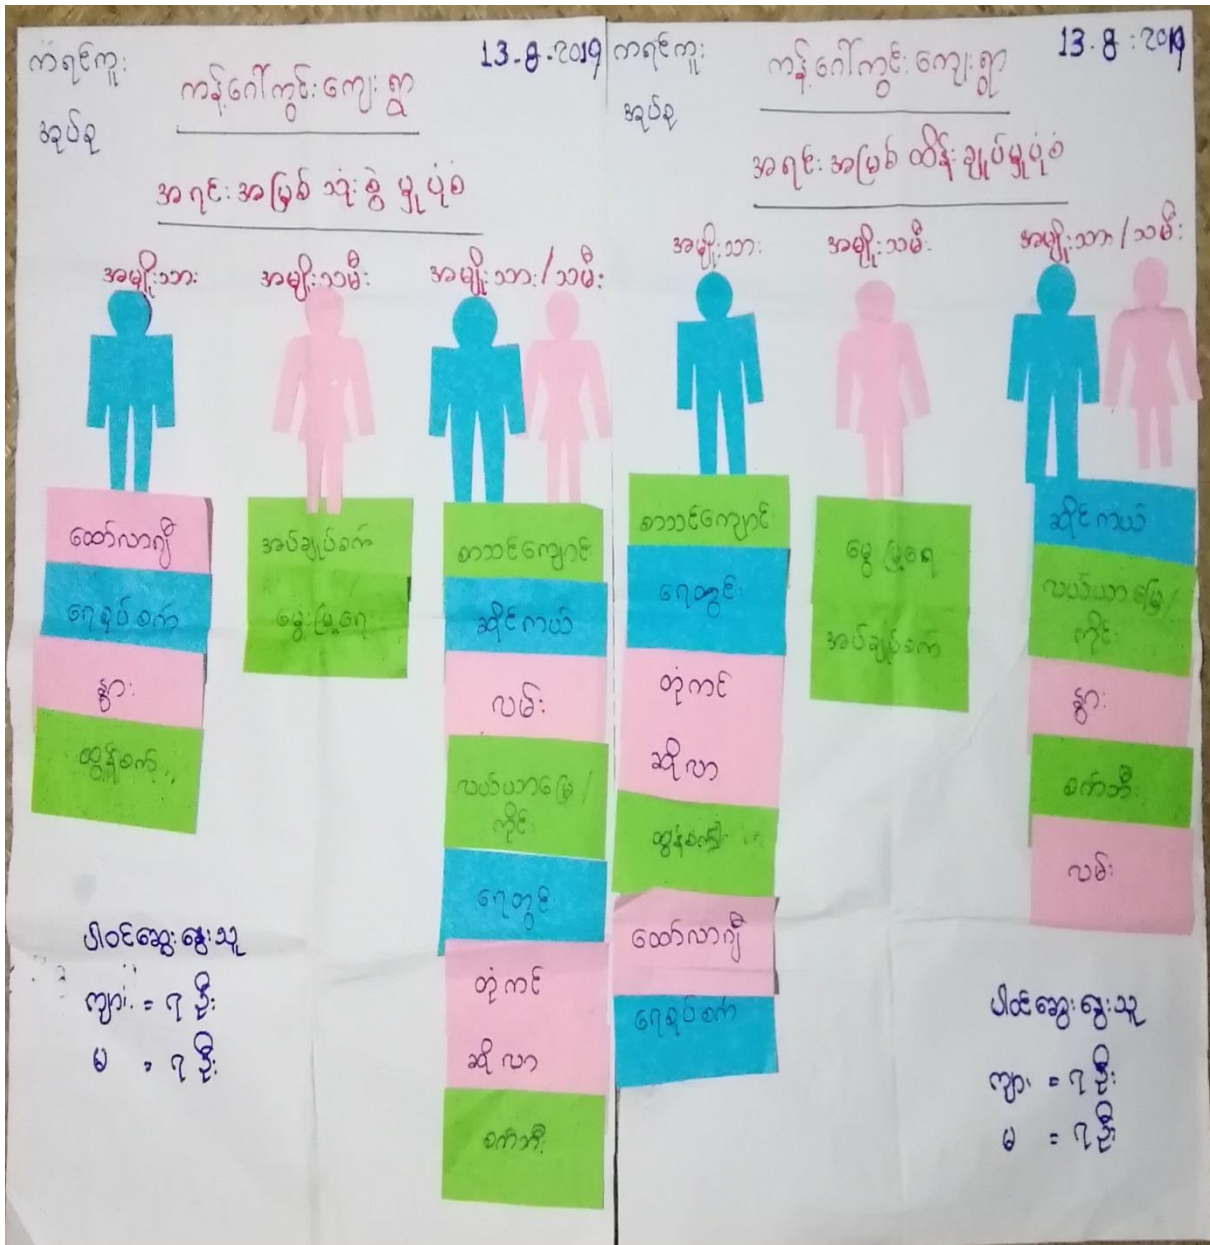 ကရင်ကူး
13-8-2019
အုပ်စု
ကန့်ဂေါ်ကွင်းကျေးရွာ
အရင်းအမြစ် သုံးစွဲမှုပုံစံ
အမျိုးသား
အမျိုးသမီး
အမျိုးသား/သမီး
ထော်လာဂျီ
ရေစုပ်စက်
နွား
ထွန်စက်
အပ်ချုပ်စက်
မွေးမြူရေး
စာသင်ကျောင်း
ဆိုင်ကယ်
လမ်း
လယ်ယာမြေ/
ကိုင်း
ရေတွင်း
တုံကင်
ဆိုလာ
စက်ဘီး
ပါဝင်ဆွေးနွေးသူ
ကျား = ၇ ဦး
မ = ၇ ဦး
ကရင်ကူး
13-8-2019
အုပ်စု
ကန့်ဂေါ်ကွင်းကျေးရွာ
အရင်းအမြစ် ထိန်းချုပ်မှုပုံစံ
အမျိုးသား
အမျိုးသမီး
အမျိုးသား/သမီး
စာသင်ကျောင်း
ရေတွင်း
တုံကင်
ဆိုလာ
ထွန်စက်
ထော်လာဂျီ
ရေစုပ်စက်
မွေးမြူရေး
အပ်ချုပ်စက်
ဆိုင်ကယ်
လယ်ယာမြေ/
ကိုင်း
နွား
စက်ဘီး
လမ်း
ပါဝင်ဆွေးနွေးသူ
ကျား = ၇ ဦး
မ = ၇ ဦး